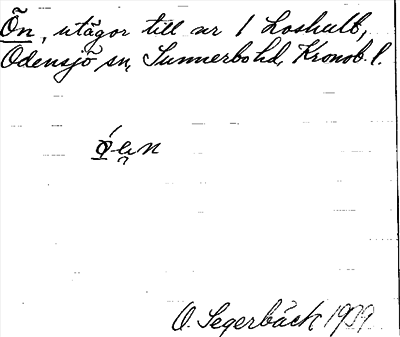 Ön, utägor till nr 1 Loshult,
Odensjö sn, Sunnerbo hd, Kronob. l.
O. Segerbäck 1909